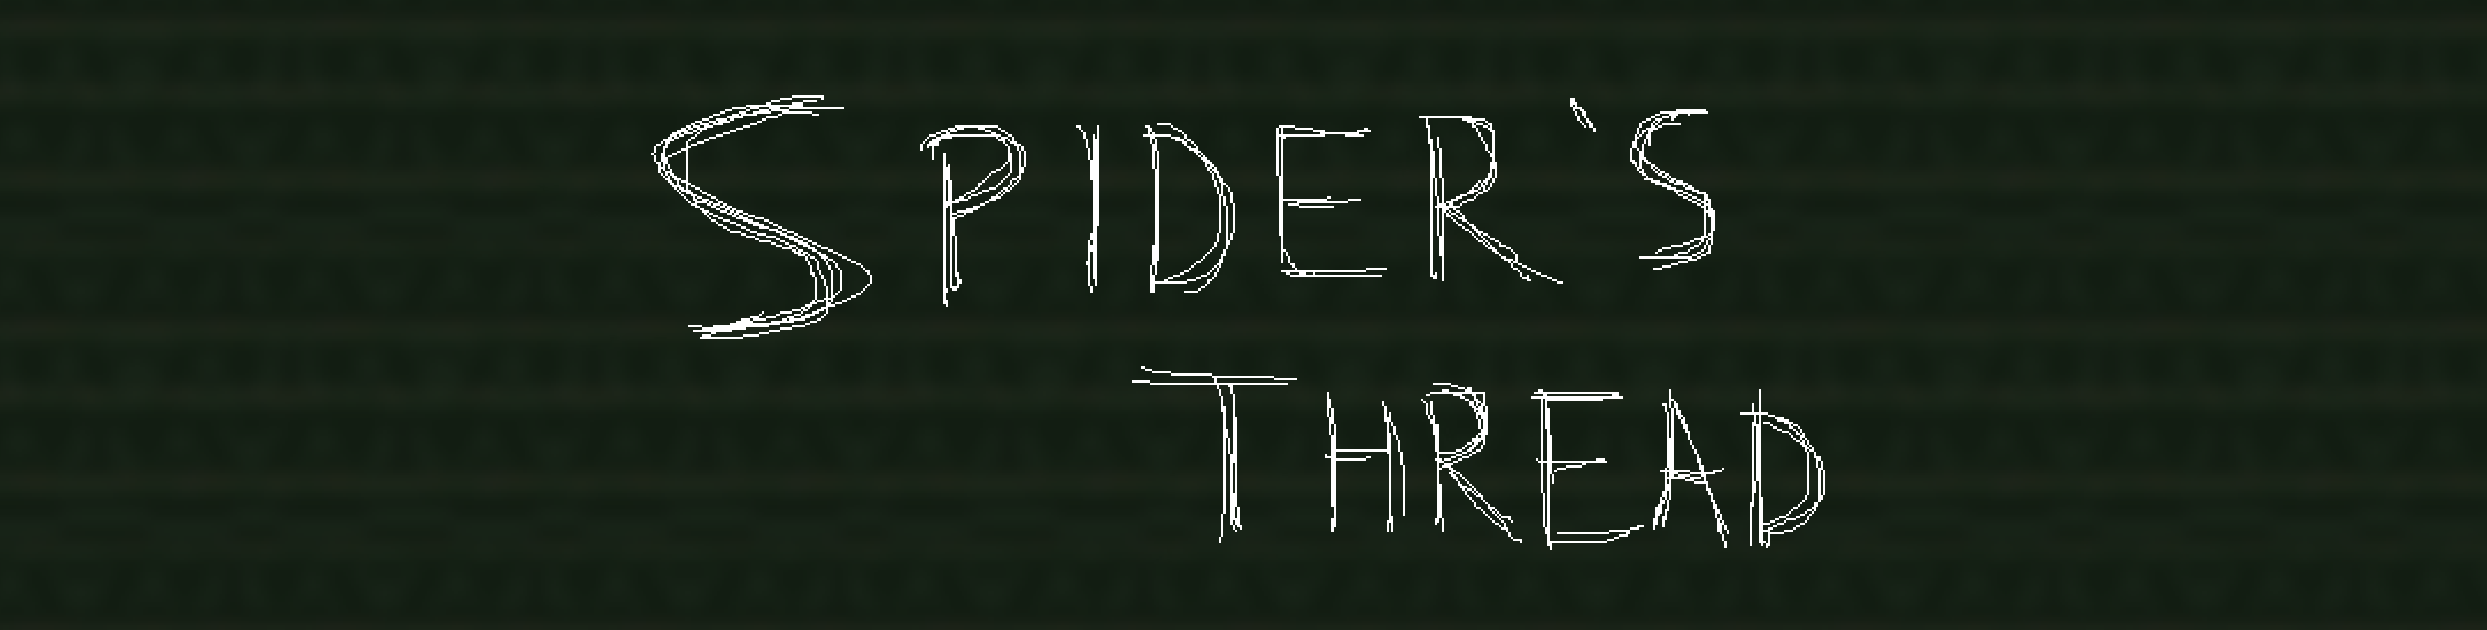 SPIDER'S
THREAD